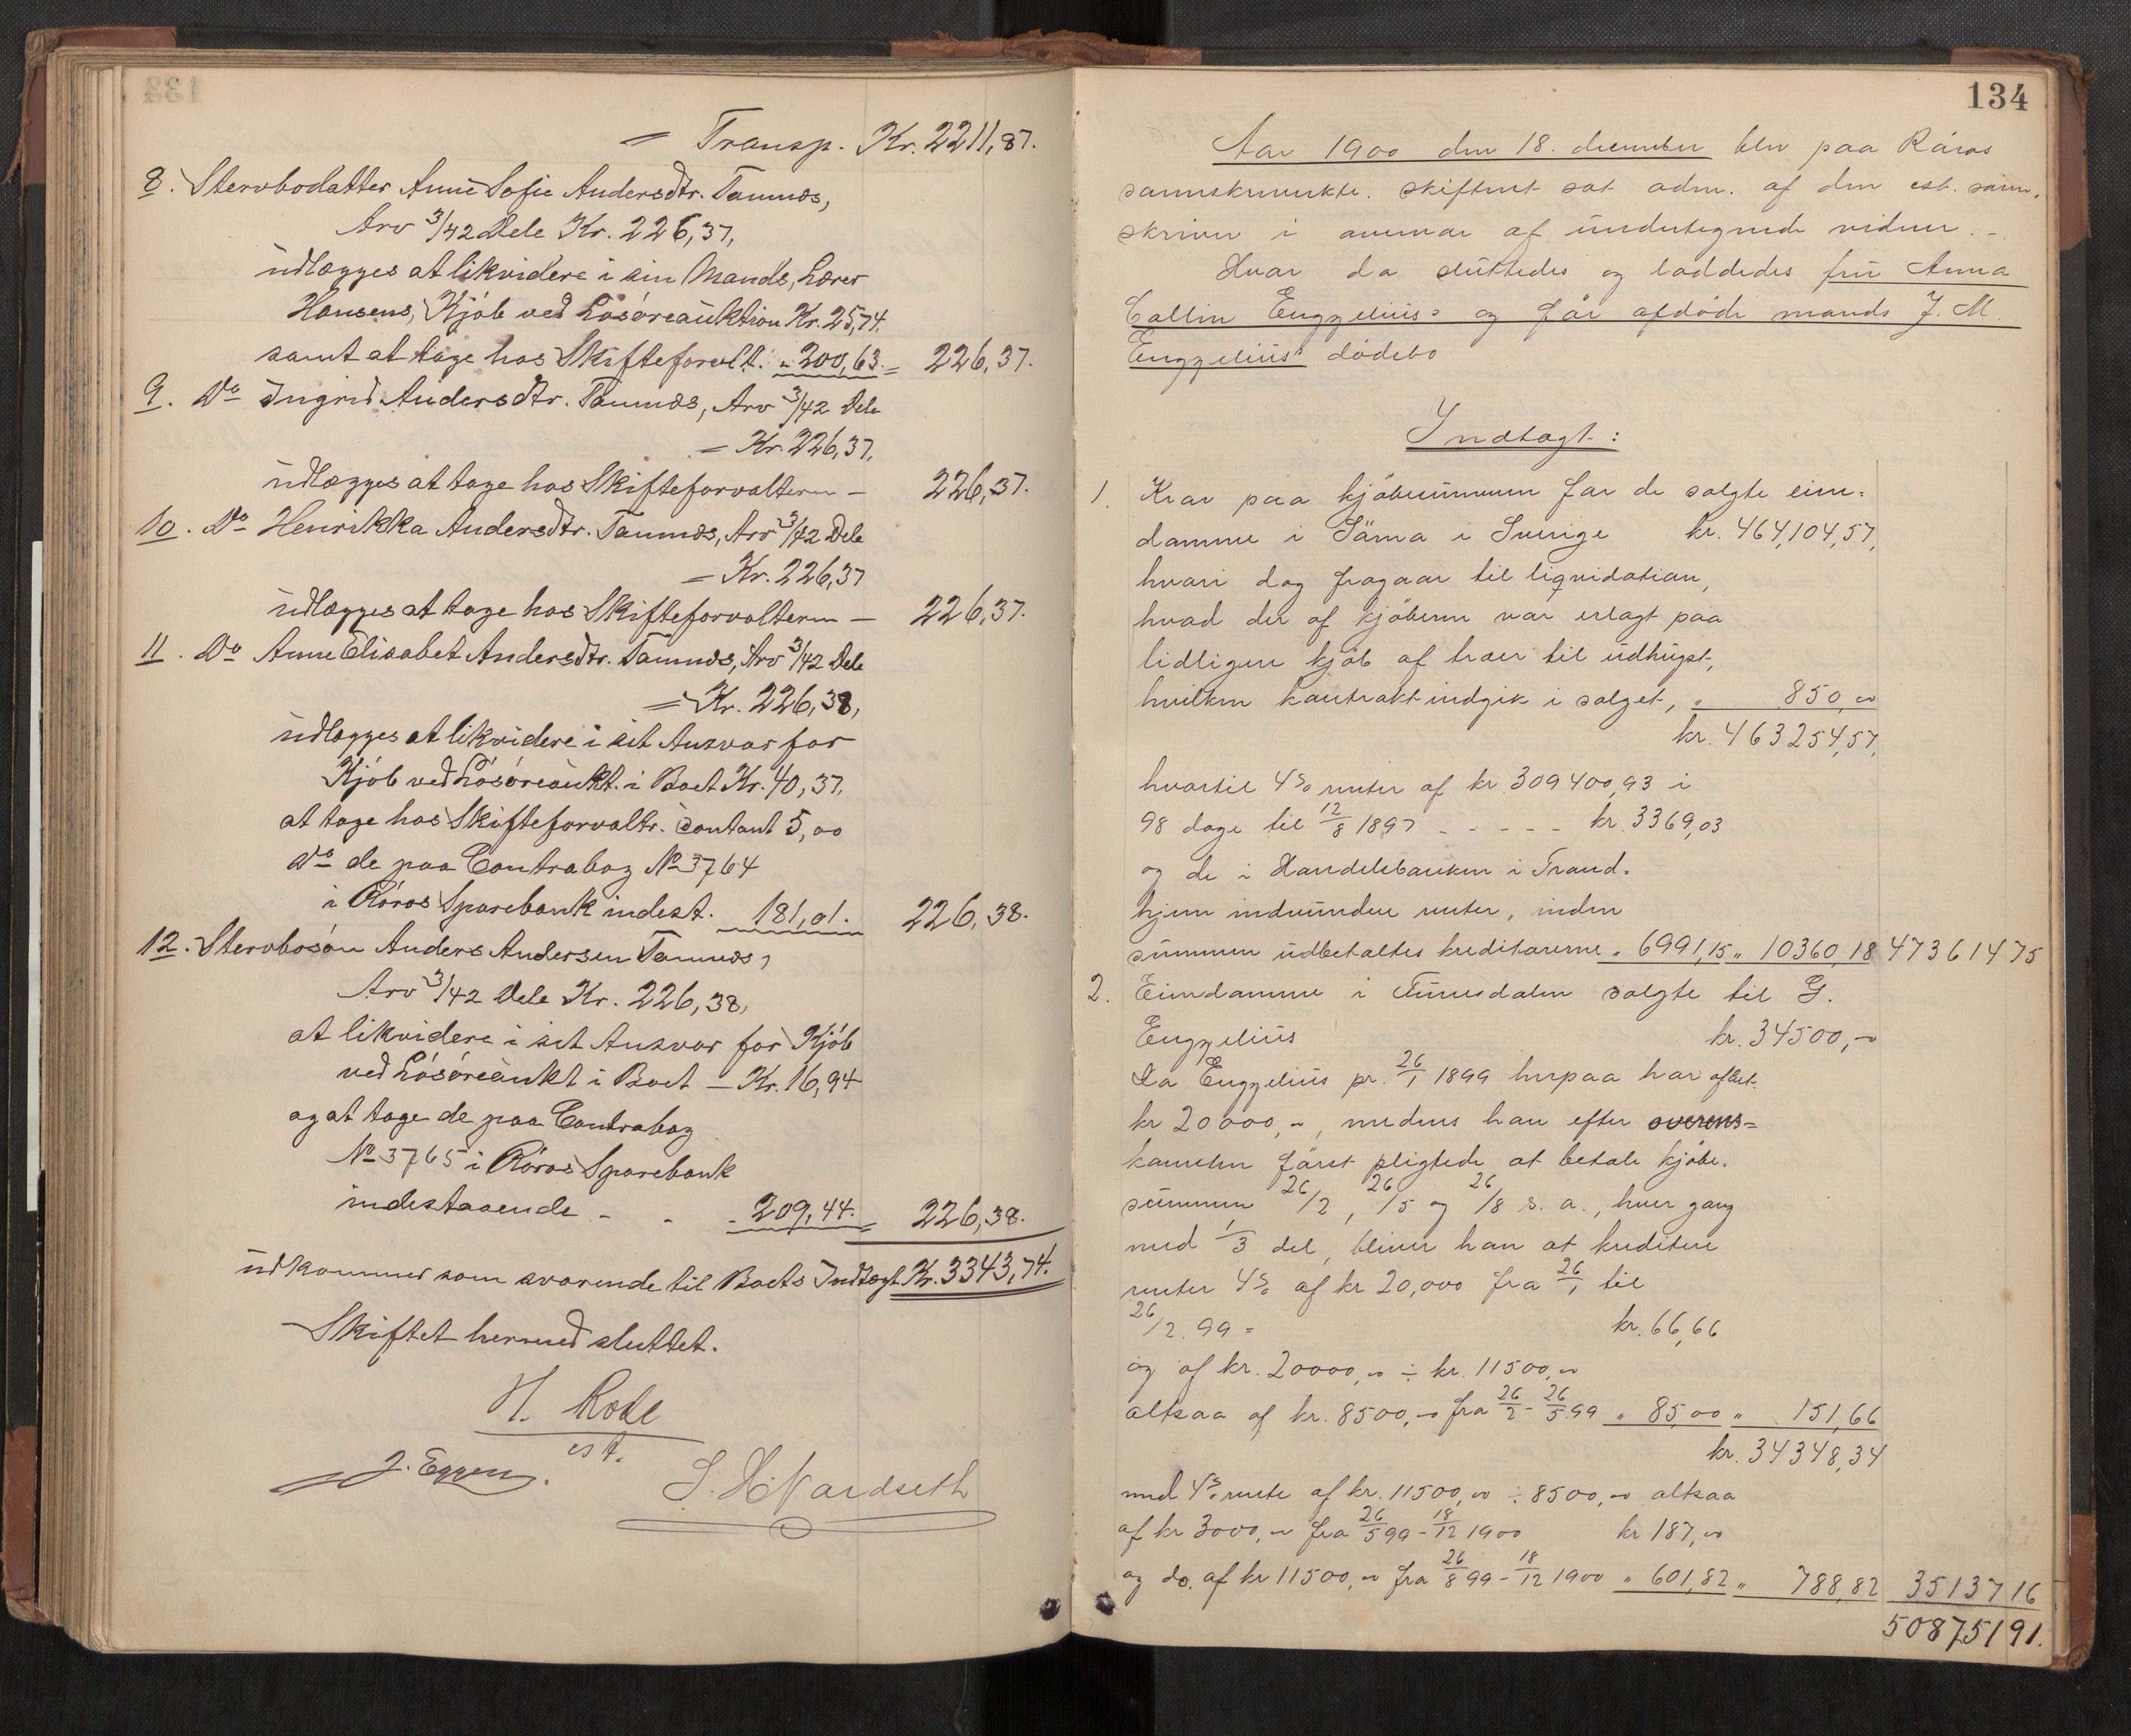 = Transp. Kr. 2211,87.
8. Stervbodatter Anne Sofie Andersdtr. Tamnæs,
Arv 3/42 Dele Kr. 226,37,
udlægges at likvidere i sin Mands, Lærer
Hansens, Kjöb ved Lösöreauktion Kr. 25,74.
samt at tage hos Skifteforvalt. " 200,63. = 226,37.
9. Do Ingrid Andersdtr. Tamnæs, Arv 3/42 Dele
= Kr. 226,37,
udlægges at tage hos Skifteforvalteren — 226,37.
10. Do Henrikka Andersdtr. Tamnæs, Arv 3/42 Dele
= Kr. 226,37
udlægges at tage hos Skifteforvalteren — 226,37.
11. Do Anne Elisabet Andersdtr. Tamnæs, Arv 3/42 Dele
= Kr. 226,38,
udlægges at likvidere i sit Ansvar for
Kjöb ved Lösöreaukt. i Boet Kr. 40,37,
at tage hos Skifteforvaltr. contant 5,00
Do de paa Contrabog No 3764
i Röros Sparebank indest. 181,01. 226,38.
12. Stervbosön Anders Andersen Tamnæs,
Arv 3/42 Dele Kr. 226,38,
at likvidere i sit Ansvar for Kjöb
ved Lösöreaukt i Boet — Kr. 16,94
og at tage de paa Contrabog
No 3765 i Röros Sparebank
indestaaende - - - 209,44. = 226,38.
udkommer som svarende til Boets Indtægt Kr. 3343,74.
Skiftet hermed sluttet.
H. Rode
cst.
J. Eggen.
134
Aar 1900 den 18. december blev paa Röros
sorenskriverkts. skifteret sat adm. af den cst. soren-
skriver i overvær af undertegnede vidner. -
Hvor da sluttedes og loddedes fru Anna
Collin Engzelius: og for afdöde mands J. M.
Engzelius: dödsbo
Indtægt:
1. Krav paa kjöbesummen for de solgte eien-
domme i Särna i Sverige kr. 464,104,57,
hvori dog fragaar til liqvidation,
hvad der af kjöberen var erlagt paa
tidligere kjöb af træer til udhugst,
hvilken kontrakt indgik i salget, " 850,00
kr. 463254,57,
hvortil 4% renter af kr. 309400,93 i
98 dage til 12/8 1897 - - - - - kr. 3369,03
og de i Handelsbanken i Trond-
hjem indvundne renter, inden
summen udbetaltes kreditorerne " 6991,15 " 10360,18 473614 75
2. Eiendomme i Funesdalen solgte til G.
Engzelius kr. 34500,-
Da Engzelius pr. 26/1 1899 herpaa har afbet.
kr 20000,-, medens han efter overens-
komsten först pligtede at betale kjöbe-
summen 26/2, 26/5 og 26/8 s. a., hver gang
med 1/3 del, bliver han at kreditere
renter 4% af kr 20,000 fra 26/1 til
26/2. 99 = kr. 66,66
og af kr. 20000,00 ÷ kr. 11500,00
altsaa af kr. 8500,- fra 26/2 - 26/5 99 " 85,00 " 151,66
kr. 34348,34
med 4% rente af kr. 11500,00 ÷ 8500,- altsaa
af kr 3000,- fra 26/5 99 - 18/12 1900 kr 187,00
og do. af kr 11500,00 fra 26/8 99 - 18/12 1900 " 601,82 " 788,82 35137 16
508751 91.